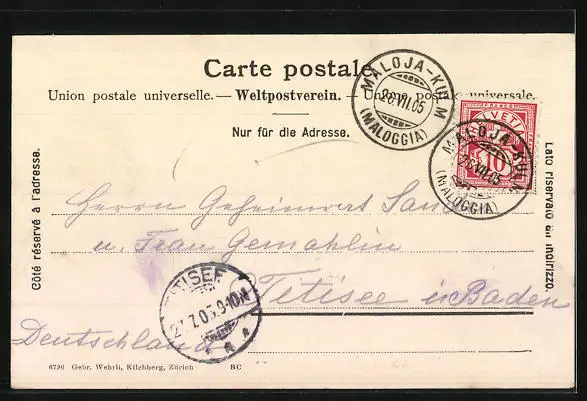 Carte postale.
Union postale universelle. — Weltpostverein. — Unione postale universale.
Nur für die Adresse.
Côté réservé à l'adresse.
Lato riservato all'indirizzo.
MALOJA-KULM
26.VII.05
(MALOGGIA)
FRANCO
HELVETIA
10
MALOJA-KULM
26.VII.05
(MALOGGIA)
Herrn Geheimrat
u. Frau Gemahlin
Titisee in Baden
Deutschland
TITISEE
27.7.05.9-10N
6796 Gebr. Wehrli, Kilchberg, Zürich BC